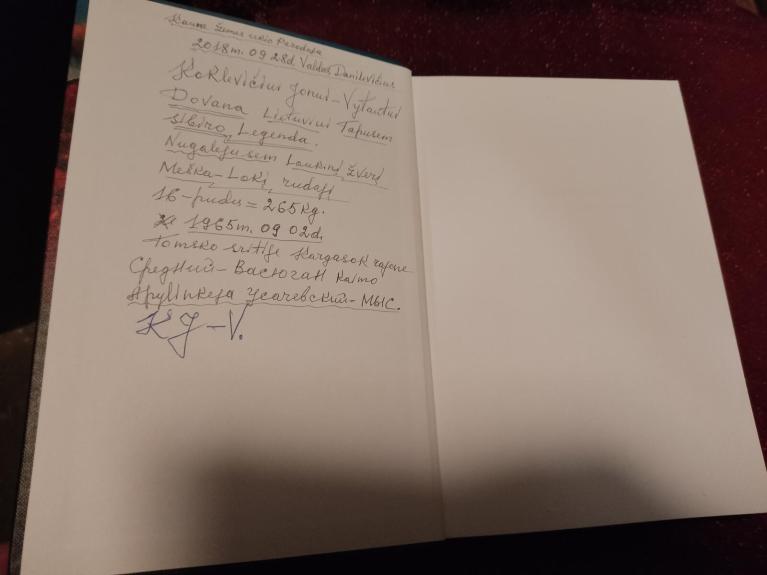 Kaune žemės ūkio Parodoje
2018m. 09 28d. Valdas Danilevičius
Koklevičiui Jonui-Vytautui
Dovana Lietuviui Tapusem
Sibiro Legenda.
Nugalėjusem Laukinį žvėrį
Meška-Lokį, rudąjį
16-pudų = 265kg.
1965m. 09 02d.
Tomsko sritije Kargasok rajone
Средний-Васюган Kaimo
Apylinkėja Усачевский-Мыс.
KJ-V.